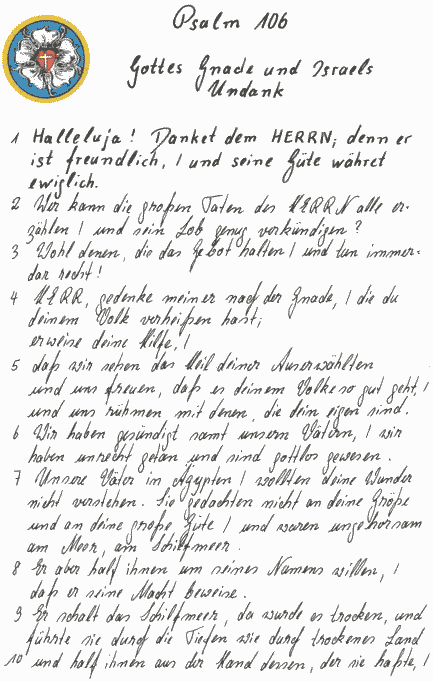 Psalm 106
Gottes Gnade und Israels
Undank
1 Halleluja! Danket dem HERRN; denn er
ist freundlich, / und seine Güte währet
ewiglich.
2 Wer kann die großen Taten des HERRN alle er-
zählen / und sein Lob genug verkündigen?
3 Wohl denen, die das Gebot halten / und tun immer-
dar recht!
4 HERR, gedenke meiner nach der Gnade, / die du
deinem Volk verheißen hast;
erweise deine Hilfe, /
5 daß wir sehen das Heil deiner Auserwählten
und uns freuen, daß es deinem Volke so gut geht, /
und uns rühmen mit denen, die dein eigen sind.
6 Wir haben gesündigt samt unsern Vätern, / wir
haben unrecht getan und sind gottlos gewesen.
7 Unsere Väter in Ägypten / wollten deine Wunder
nicht verstehen. Sie gedachten nicht an deine Größe
und an deine große Güte / und waren ungehorsam
am Meer, am Schilfmeer.
8 Er aber half ihnen um seines Namens willen, /
daß er seine Macht beweise.
9 Er schalt das Schilfmeer, da wurde es trocken, und
führte sie durch die Tiefen wie durch trockenes Land
10 und half ihnen aus der Hand dessen, der sie haßte, /